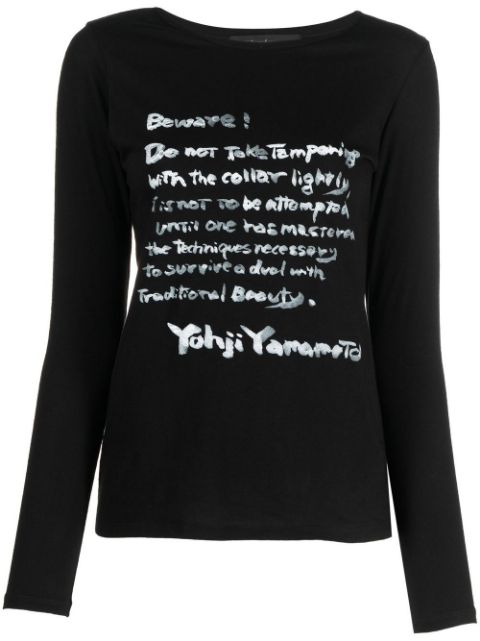 Beware!
Do not Take Tampering
with the collar lightly
it is not to be attempted
until one has mastered
the Techniques necessary
to survive a duel with
Traditional Beauty.
Yohji Yamamoto